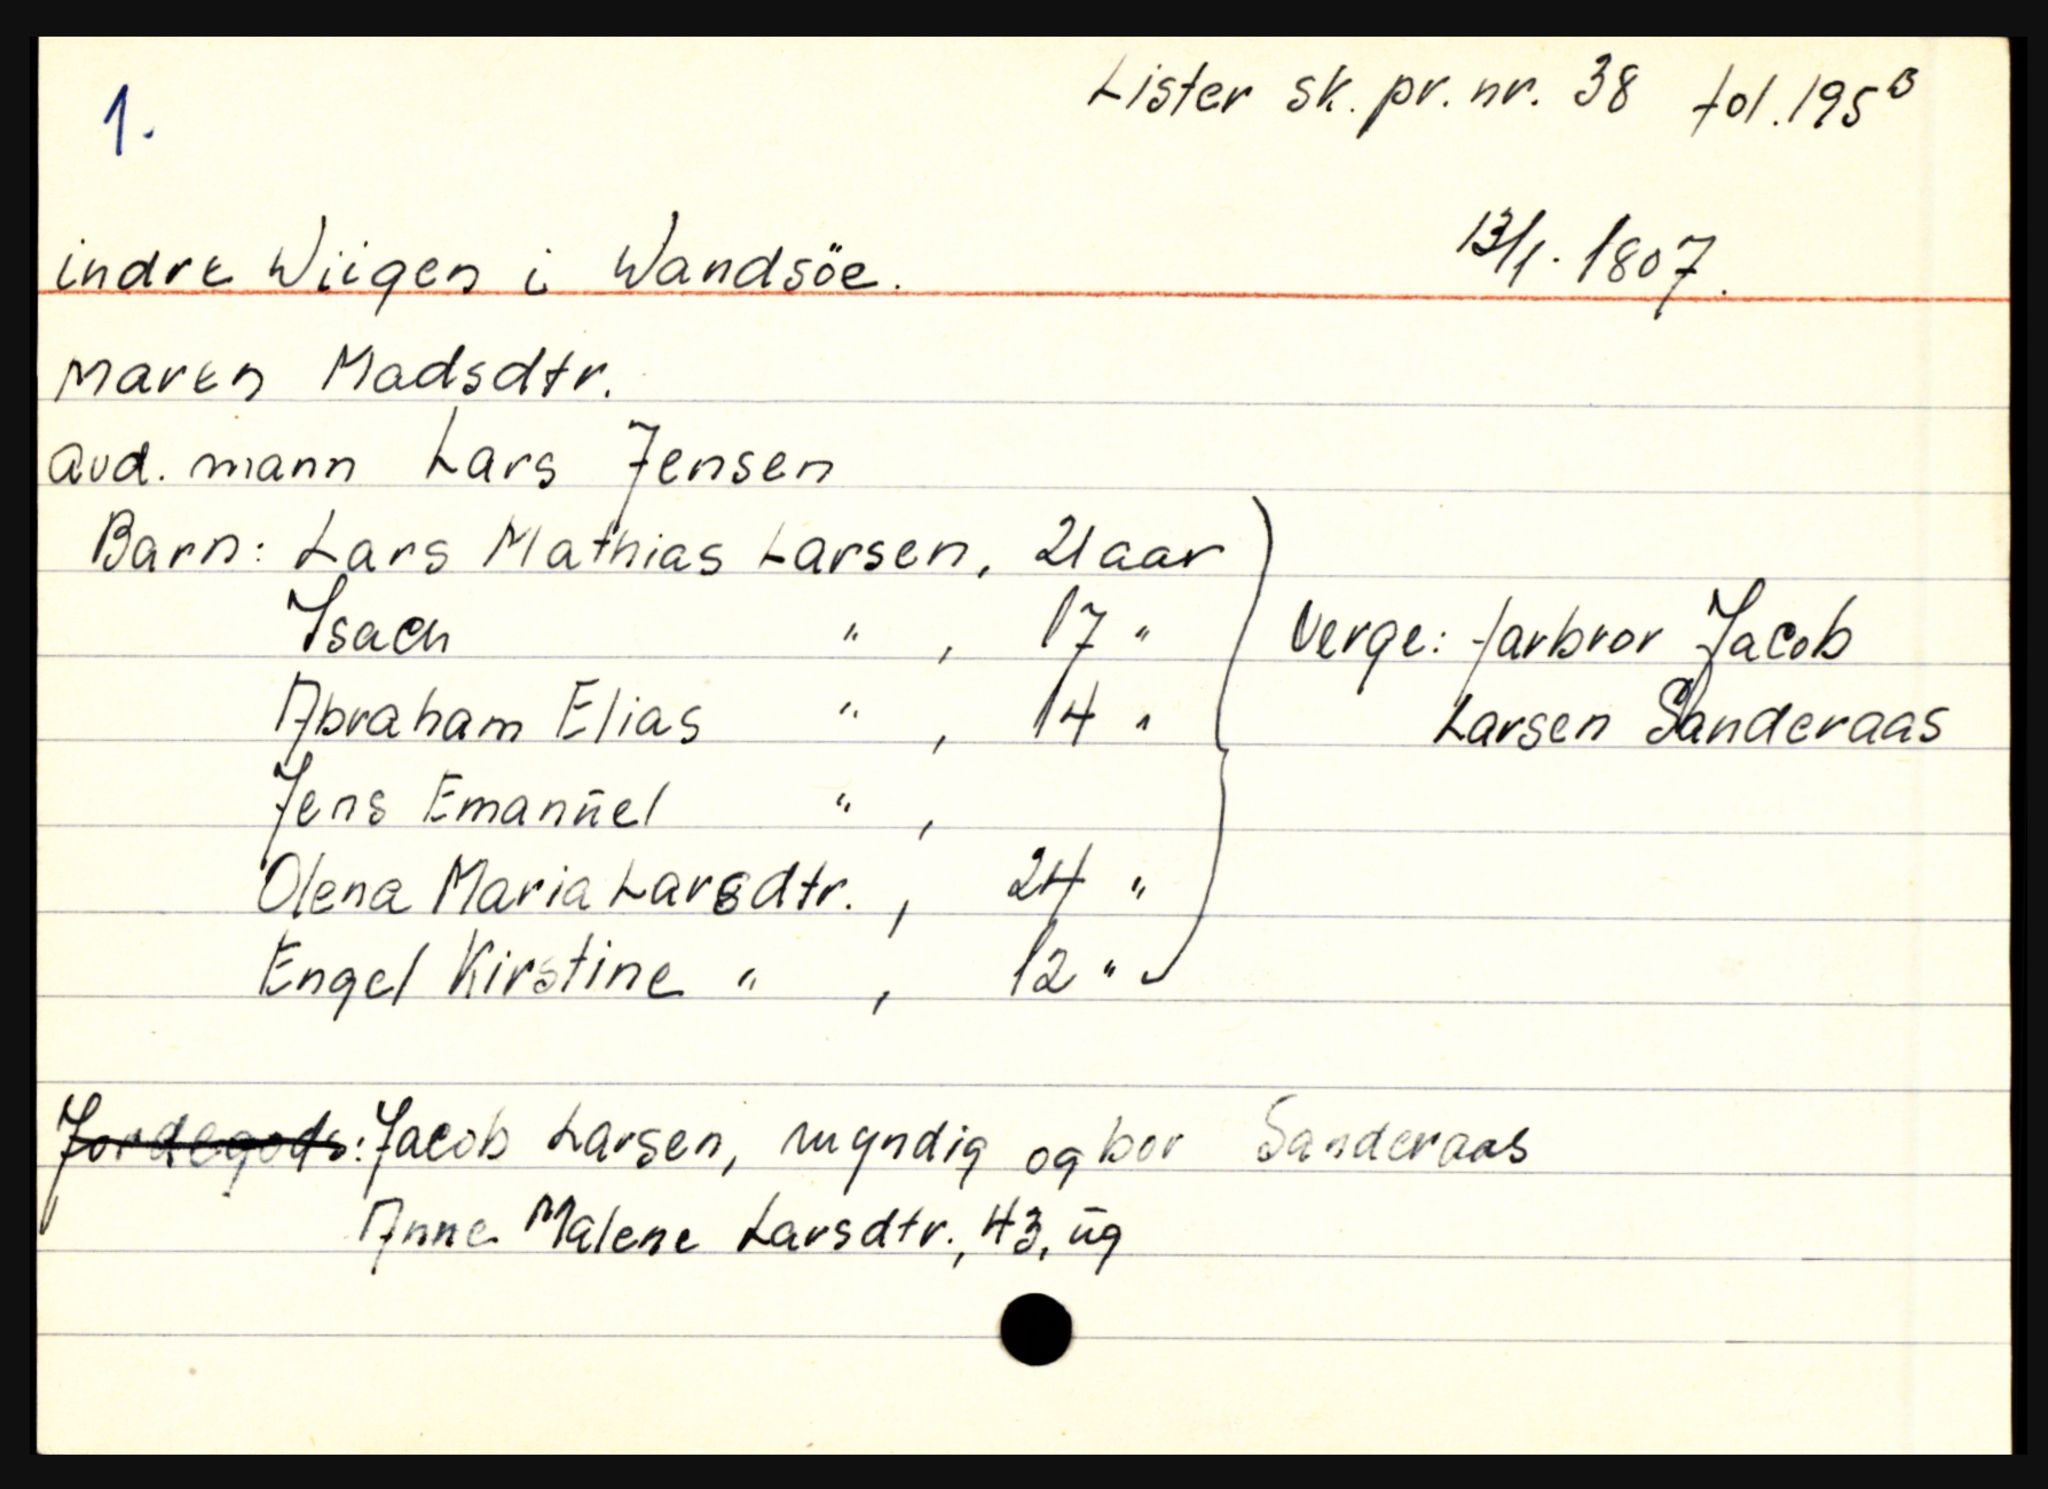 1.
Lister sk. pr. nr. 38 fol. 195 B
indre Wiigen i Wandsöe. 13/1. 1807.
Maren Madsdtr.
avd. mann Lars Jensen
Barn: Lars Mathias Larsen, 21 aar
Isach " , 17 " Verge: farbror Jacob
Abraham Elias " , 14 " Larsen Sanderaas
Jens Emanūel " ,
Olena Maria Larsdtr. , 24 "
Engel Kirstine " , 12 "
Jordegods: Jacob Larsen, myndig og bor Sanderaas
Anne Malene Larsdtr., 43, ūg